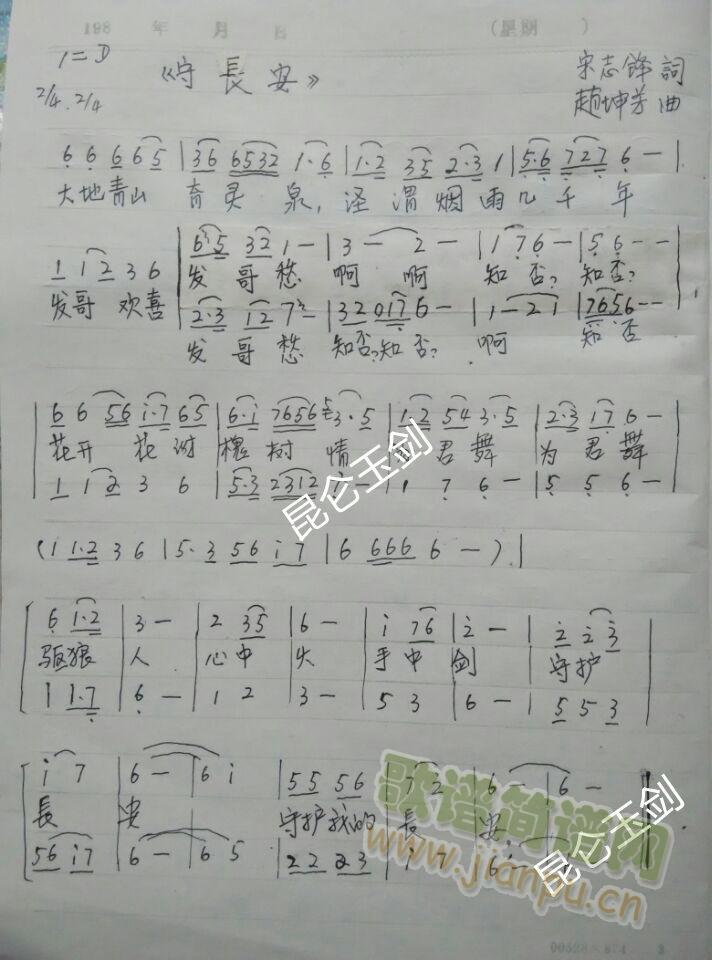 198 年 月 日 (星期 )
1=D
《守長安》
宋志锋詞
2/4. 2/4
趙坤芳曲
6 6 6 6 5 | 3 6 6532 1·6 | 1·2 35 2·3 1 | 5·6 727 6 — |
大地青山 育灵泉,泾渭烟雨几千年
1 1 2 3 6 | 6 5 32 1 — | 3 — 2 — | 1 7 6 — | 5 6 — —
发哥欢喜 发哥愁 啊 啊 知否?知否?
2·3 12 7 | 32 017 6 — | 1 — 2 1 | 7656 — —
发哥愁 知否?知否? 啊 知否
| 6 6 56 i·7 65 | 6·i 7656 3·5 | 1·2 54 3·5 | 2·3 17 6 — |
花开花谢槐树情 君舞 为君舞
1 1 2 3 6 | 5·3 2312 — | 1 7 6 — | 5 5 6 —
(1 1·2 3 6 | 5·3 56 i7 | 6 666 6 — ) |
6 1·2 | 3 — | 2 35 | 6 — | i 76 | 2 — | 2 2 3
驱狼人 心中火 手中剑 守护
1 1·7 | 6 — | 1 2 | 3 — | 5 3 | 6 — | 5 5 3
i 7 | 6 — | 6 i | 55 56 | 7 2 | 6 — | 6 —
長安 守护我的長安
56 i7 | 6 — | 6 5 | 22 23
昆仑玉剑
昆仑玉剑
歌谱简谱网
www.jianpu.cn